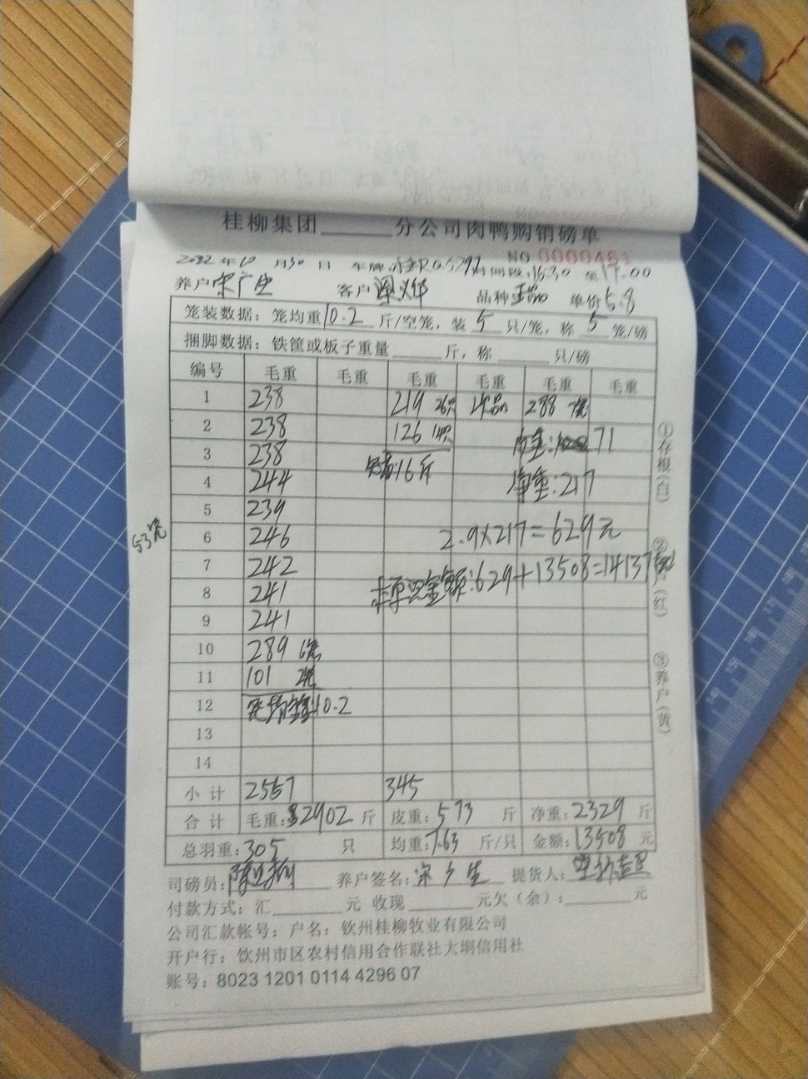 桂柳集团______分公司肉鸭购销磅单
NO 0000451
2022 年 10 月 30 日 车牌: 时间段: 16:30 至 17:00
养户 宋广生 客户 品种 正品 单价 5.8
笼装数据: 笼均重 10.2 斤/空笼, 装 5 只/笼, 称 5 笼/磅
捆脚数据: 铁筐或板子重量______斤, 称______只/磅
编号 毛重 毛重 毛重 毛重 毛重 毛重
1 238 219 26只 次品 288 7笼
2 238 126 14只 皮重: 71
3 238 16斤
4 244 净重: 217
5 239
53笼 6 246 2.9×217=629元
7 242
8 241 总金额: 629+13508=14137
9 241
10 289 6笼
11 101 2笼
12 笼均重10.2
13
14
小计 2557 345
合计 毛重: 2902 斤 皮重: 573 斤 净重: 2329 斤
总羽重: 305 只 均重: 7.63 斤/只 金额: 13508 元
司磅员: 养户签名: 宋广生 提货人:
付款方式: 汇______元 收现______元欠(余): ______元
公司汇款帐号: 户名: 钦州桂柳牧业有限公司
开户行: 钦州市区农村信用合作联社大垌信用社
账号: 8023 1201 0114 4296 07
①存根(白)
②(红)
③养户(黄)